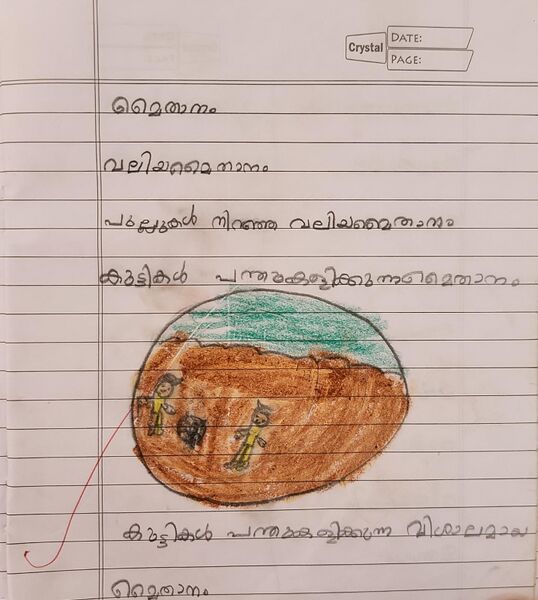 Crystal
DATE:
PAGE:
മൈതാനം
വലിയമൈതാനം
പുല്ലുകൾ നിറഞ്ഞ വലിയമൈതാനം
കുട്ടികൾ പന്തുകളിക്കുന്നമൈതാനം
കുട്ടികൾ പന്തുകളിക്കുന്ന വിശാലമായ
മൈതാനം